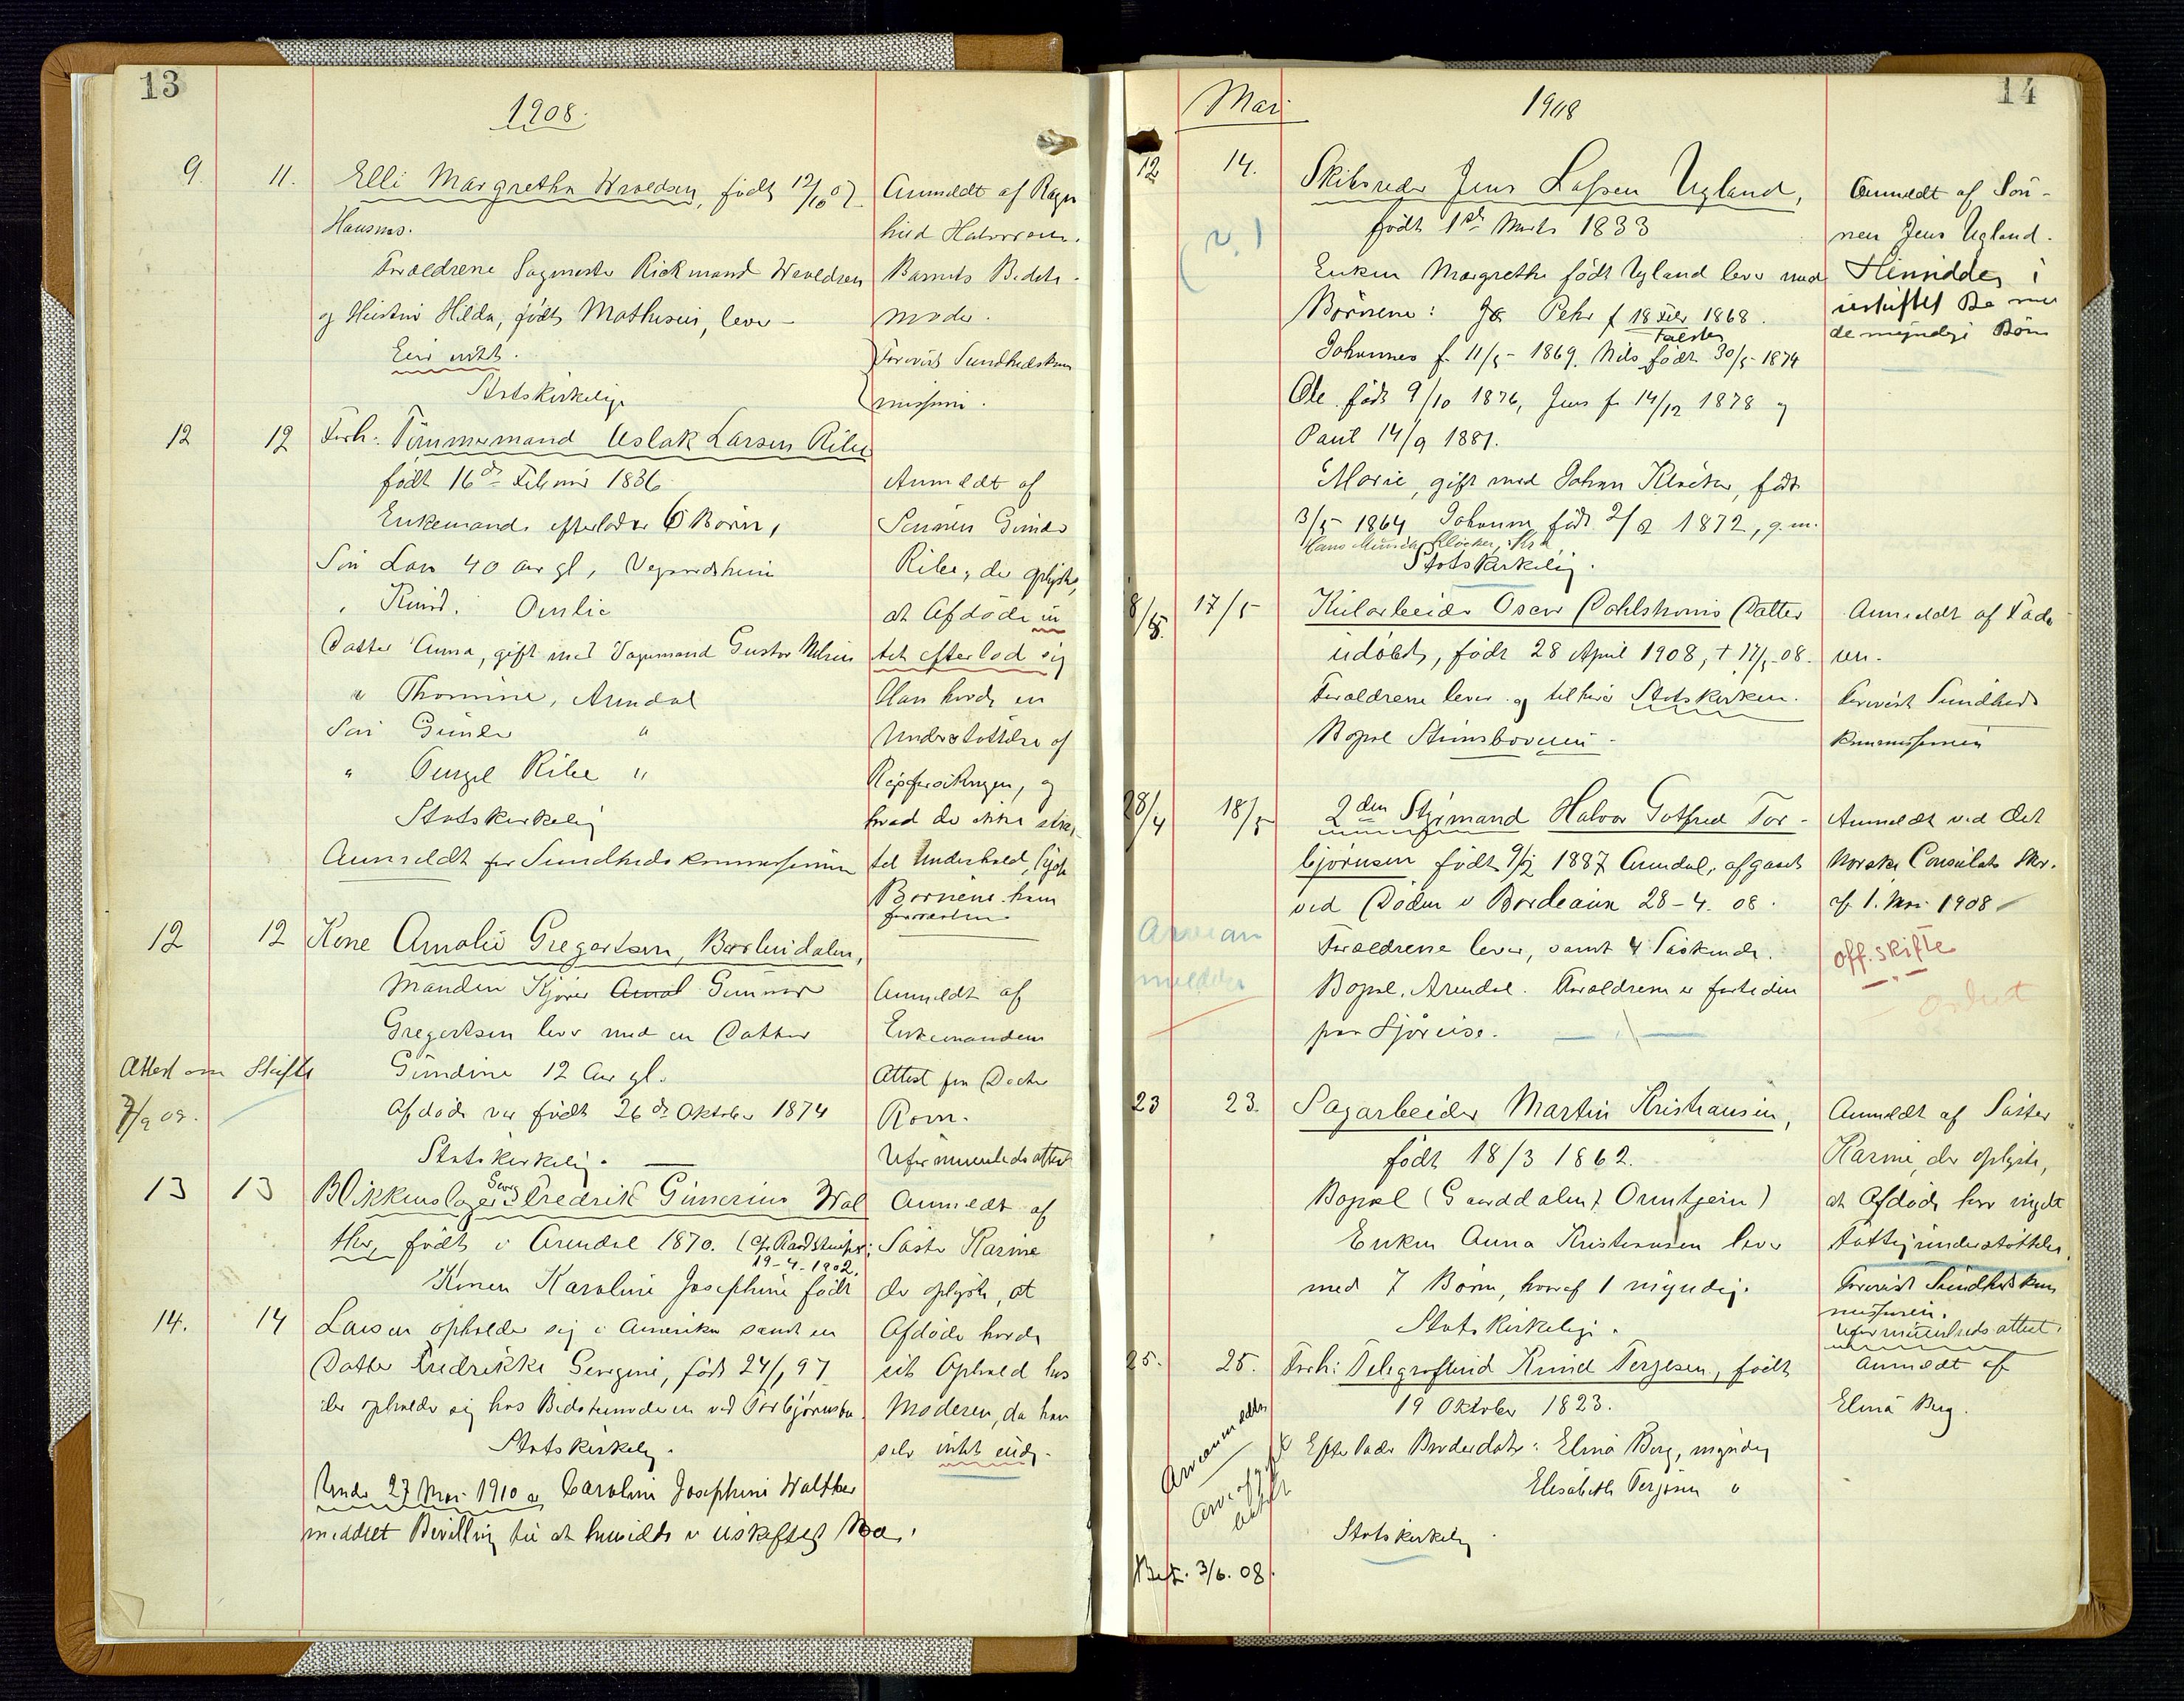 13
1908.
9. 11. Elli Margretha Woldsen, födt 12/10 07
Hausnes.
Forældrene Sagmester Rickmand Woldsen
og Hustru Hilda, födt Mathisen, lever
Eier intet.
Statskirkelige
Anmeldt af Ragn
hild Halvorsen.
Barnets Bedste-
moder.
Forevist Sundhedskom
missionen.
12 12 Forh. Tömmermand Aslak Larsen Ribe
födt 16de Februar 1836
Enkemand, efterlader 6 Börn,
Sön Lars 40 aar gl, Vegardsheien
" Knud. Omlie
Datter Anna, gift med Dagmand Gustav Nilsen
" Thomine, Arendal
Sön Gunder "
" Terjel Ribe "
Statskirkelig
Anmeldt for Sundhedskommissionen
Anmeldt af
Sönnen Gunder
Ribe, der oplyste,
at Afdöde in
tet efterlod sig
Han havde en
Understöttelse af
Repforsikringen, og
hvad der ikke strak
til Underhold,
Börnene ham
forresten
12 12 Kone Amalie Gregertsen, Barbudalen,
Manden Kjører Amal Gunnar
Gregertsen lever med en Datter
Gundine 12 Aar gl.
Afdöde var födt 26de Oktober 1874
Statskirkelig.
Attest om Skifte
7/9 08.
Anmeldt af
Enkemanden
Attest fra Doctor
Rorn.
Uformuenhedsattest
13 13 Blikkenslager Georg Fredrik Gunerius Wal
ther, födt i Arendal 1870. (cfr Raadstueprot.
19-4-1902.
Konen Karoline Josephine födt
14. 14 Larsen opholder sig i Amerika samt en
Datter Fredrikke Georgine, födt 24/1 97
der opholder sig hos Bedstemoderen ved Torbjörnsbu.
Statskirkelig.
Under 27 Mai 1910 er Caroline Josephine Walther
meddelt Bevilling til at hensidde i uskiftet Bo.
Anmeldt af
Söster Karine
der oplyste, at
Afdöde havde
sit Ophold hos
Moderen, da han
selv intet eied.
14
Mai 1908
12 14. Skibsreder Jens Lassen Ugland,
födt 1ste Marts 1833
Enken Margrethe födt Ugland lever med
Börnene: Peder f 18 Febr 1868.
Johannes f. 11/5 - 1869. Nils Falster födt 30/5 - 1874
Ole födt 9/10 1876, Jens f. 14/12 1878 og
Paul 14/9 1881.
Marie, gift med Johan Klöcker, födt
3/5 1864 Johanna födt 2/2 1872, g.m.
Hans Munch Klöcker, Kr.a
Statskirkelig.
Anmeldt af Sön-
nen Jens Ugland.
Hensidder i
uskiftet Bo med
de myndige Börn
8/5 17/5 Kularbeider Oscar Dahlströms Datter
udöbt, födt 28 April 1908, † 17/5 - 08.
Forældrene lever og tilhører Statskirken.
Bopæl Steinsborveien.
Anmeldt af Fade
ren.
Forevist Sundheds
kommissionen
28/4 18/5 2den Styrmand Halvor Gotfred Tor-
björnsen födt 9/2 1887 Arendal, afgaaet
ved Döden i Bordeaux 28-4-08.
Forældrene lever, samt 4 Söskende.
Bopæl, Arendal. Forældrene er fortiden
paa Sjöreise.
Arvean
meldelse
Anmeldt ved det
Norske Consulats Skr.
af 1. Mai 1908
off. skifte
23 23. Sagarbeider Martin Kristiansen,
födt 18/3 1862.
Bopæl (Gaarddalen, Ormtjern)
Enken Anna Kristiansen lever
med 7 Börn, hvoraf 1 myndig.
Statskirkelige.
Anmeldt af Söster
Karine, der oplyste,
at Afdöde har nydt
Fattigunderstöttelse.
Forevist Sundhedskom
missionen.
Uformuenhedsattest.
25. 25. Forh: Telegrafbud Knud Terjesen, födt
19 Oktober 1823.
Efterlader Broderdøtre: Elina Berg, myndig
Elisabeth Terjesen "
Statskirkelig
Arveanmeldelse
Arveafgift
betalt
Bet. 3/6. 08.
Anmeldt af
Elina Berg.